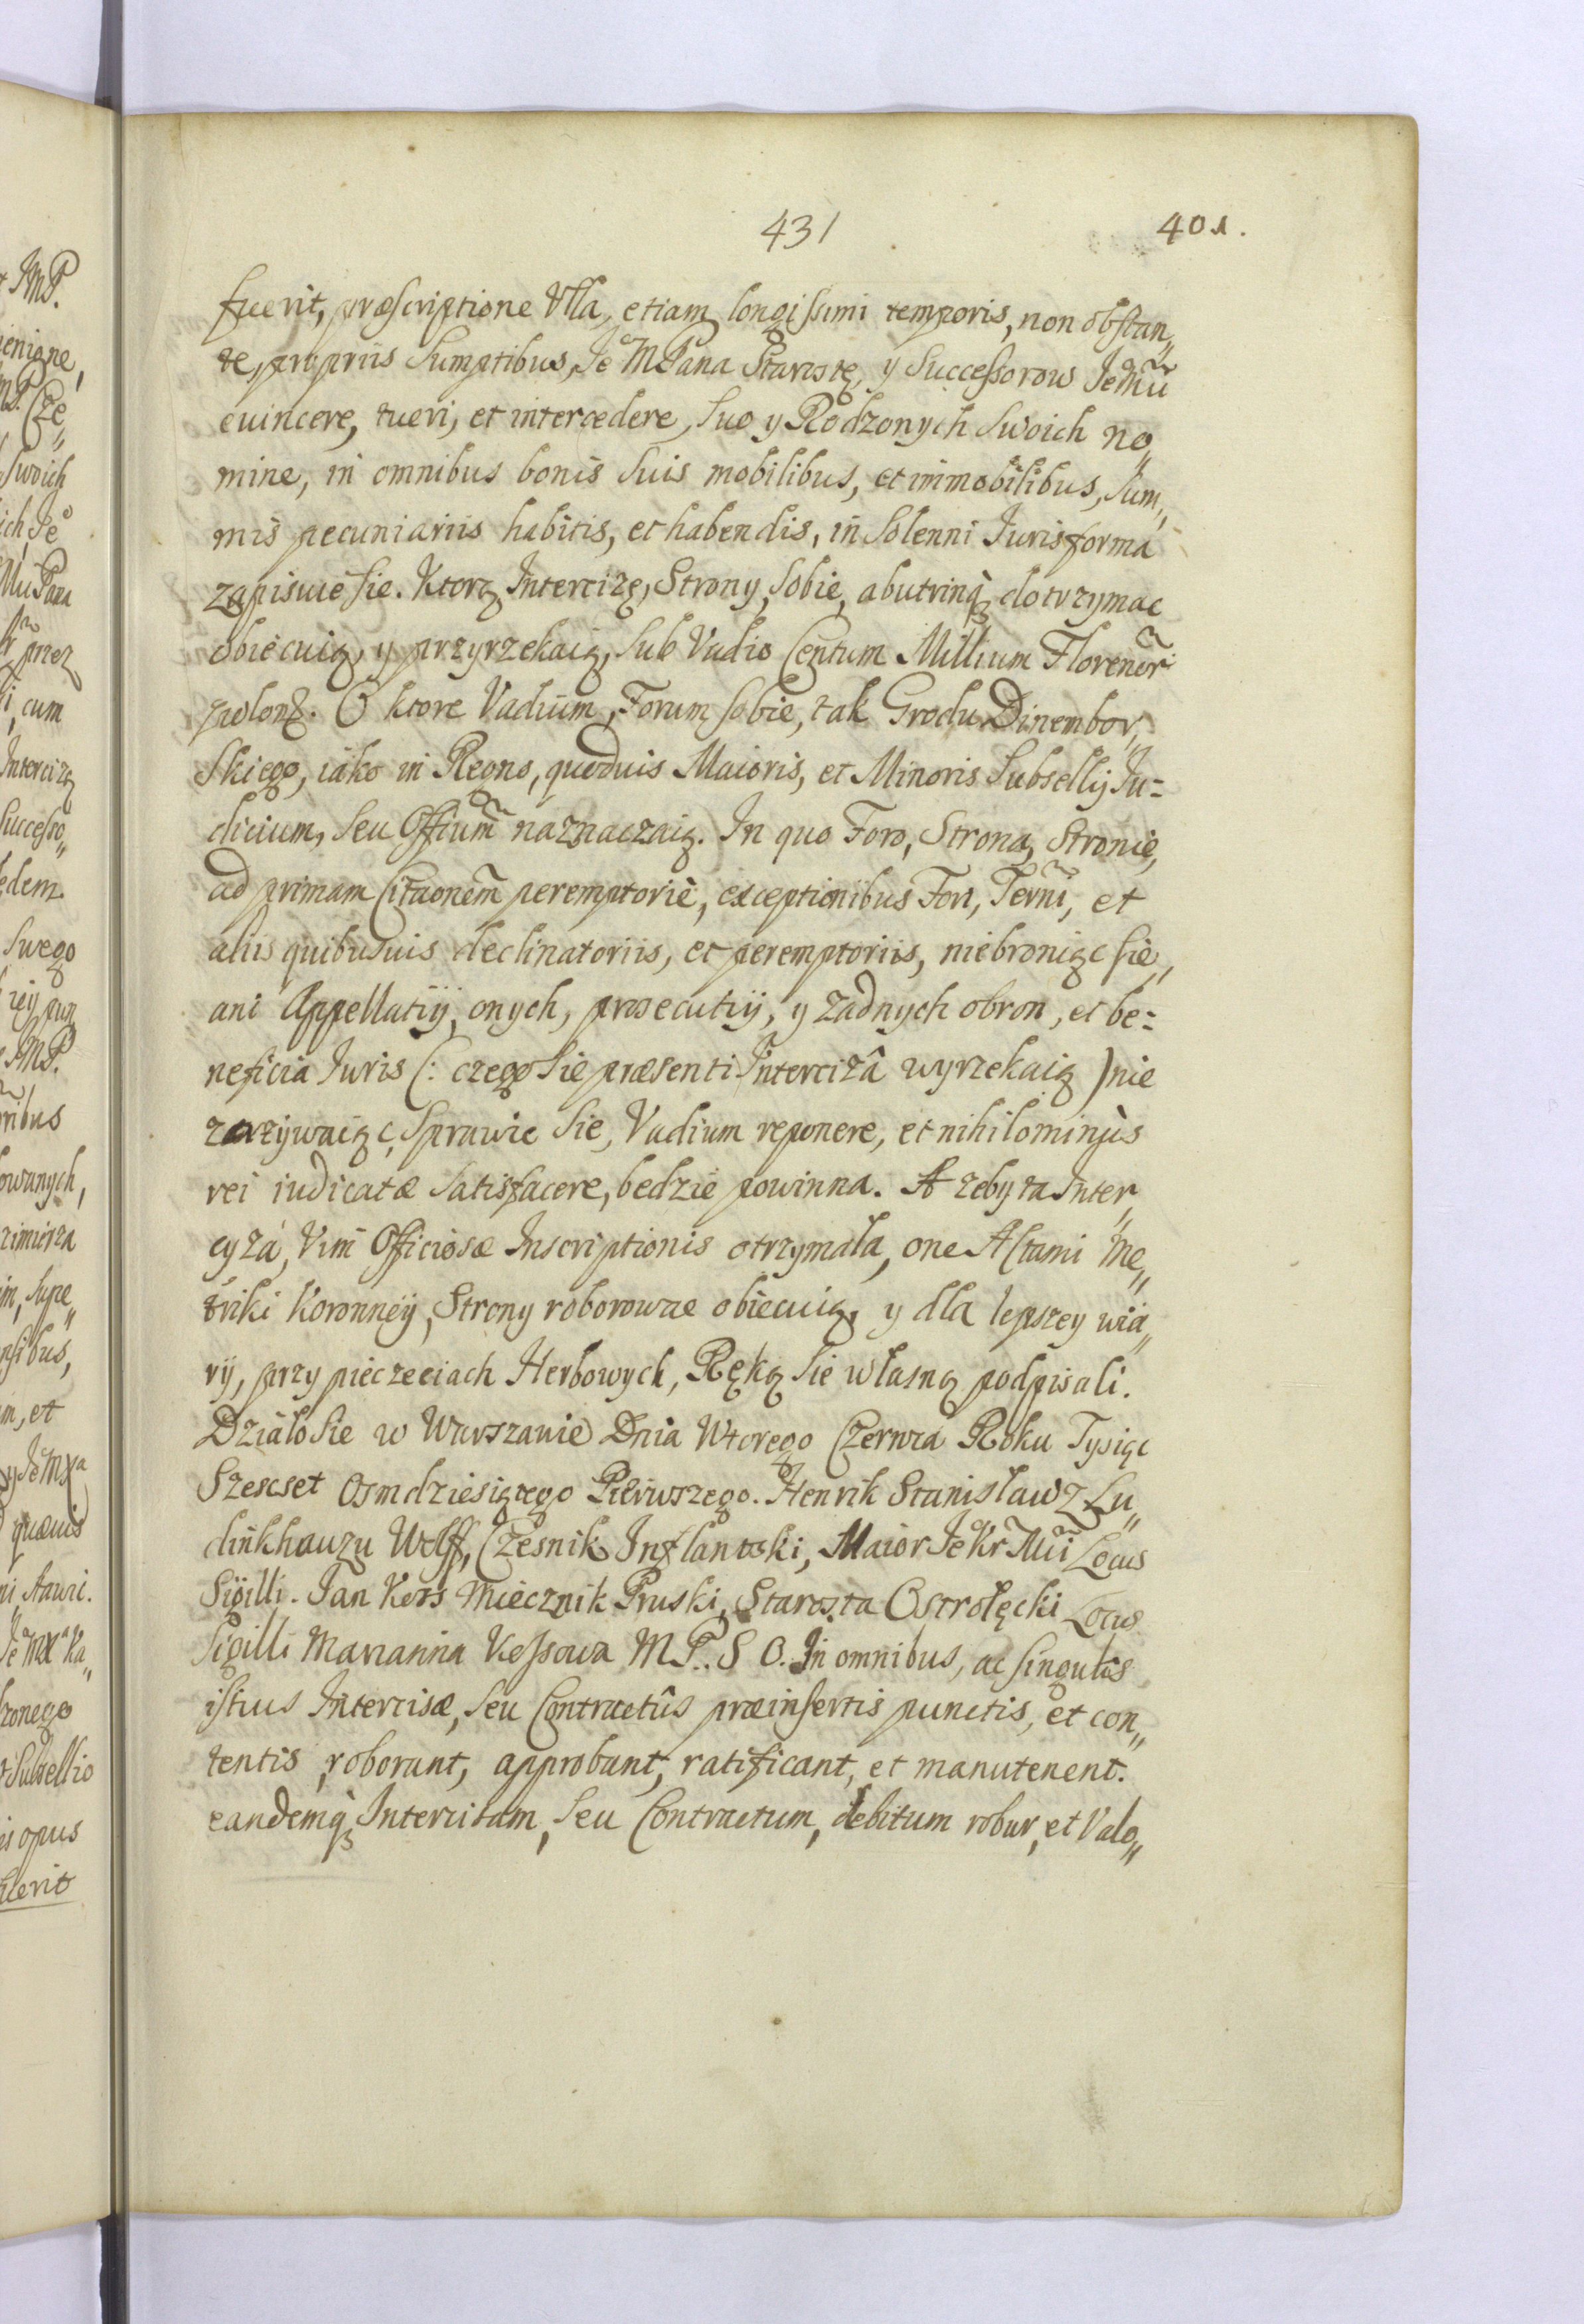 431
401.
fuerit, præscriptione Vlla, etiam longissimi temporis, non obstan„
te, propriis Sumptibus, Je MPana Starostę, y Successorow JeMũ
euincere, tueri, et intercedere, Suo y Rodzonych Swoich no„
mine, in omnibus bonis Suis mobilibus, et immobilibus, Sum„
mis pecuniariis habitis, et habendis, in Solenni Juris forma
zapisuie sie. Ktorą Intercizę, Strony, Sobie, abutrinq dotrzymac
obiecuią, y przyrzekaią, Sub Vadio Centum Millium Florenor̃
polon. O ktore Vadium, Forum sobie, tak Grodu Dinembor„
Skiego, iako in Regno, quoduis Maioris, et Minoris Subsellij Ju=
dicium, Seu Offium̃ naznaczaią. In quo Foro, Strona, Stronie,
ad primam Citaonem̃ peremptoriè, exceptionibus Fori, Ter̃ni, et
aliis quibusuis declinatoriis, et peremptoriis, niebroniąc sie,
ani Appellatiÿ, onych, prosecutiÿ, y Zadnych obron, et be=
neficia Juris (: czego Sie præsenti Intercizâ wyrzekaią ) nie
zarzywaiąc, Sprawic Sie, Vadium reponere, et nihilominùs
rei iudicatæ Satisfacere, bedzie powinna. A zeby ta Inter„
cyza, Vim Officiosæ Inscriptionis otrzymała, one Actami Me„
triki Koronneÿ, Strony roborowac obiecuią, y dla lepszey wia„
rÿ, przy pieczeciach Herbowych, Ręką Sie własną podpisali.
Działo Sie w Warszawie Dnia Wtorego Czerwca Roku Tysiąc
Szescset Osmdziesiątego Pierwszego. Henrik Stanisław Z Lu„
dinkhauzu Wolff, Czesnik Inflantski, Maior Je Kr Mũi Locus
Sigilli. Jan Kors Miecznik Pruski, Starosta Ostrołęcki Locus
Sigilli Marianna Kossowa M P. S O. In omnibus, ac singulis
istius Intercisæ, Seu Contractûs præinsertis punctis, et con„
tentis, roborant, approbant, ratificant, et manutenent.
eandemq Intercisam, Seu Contractum, debitum robur, et Valo„